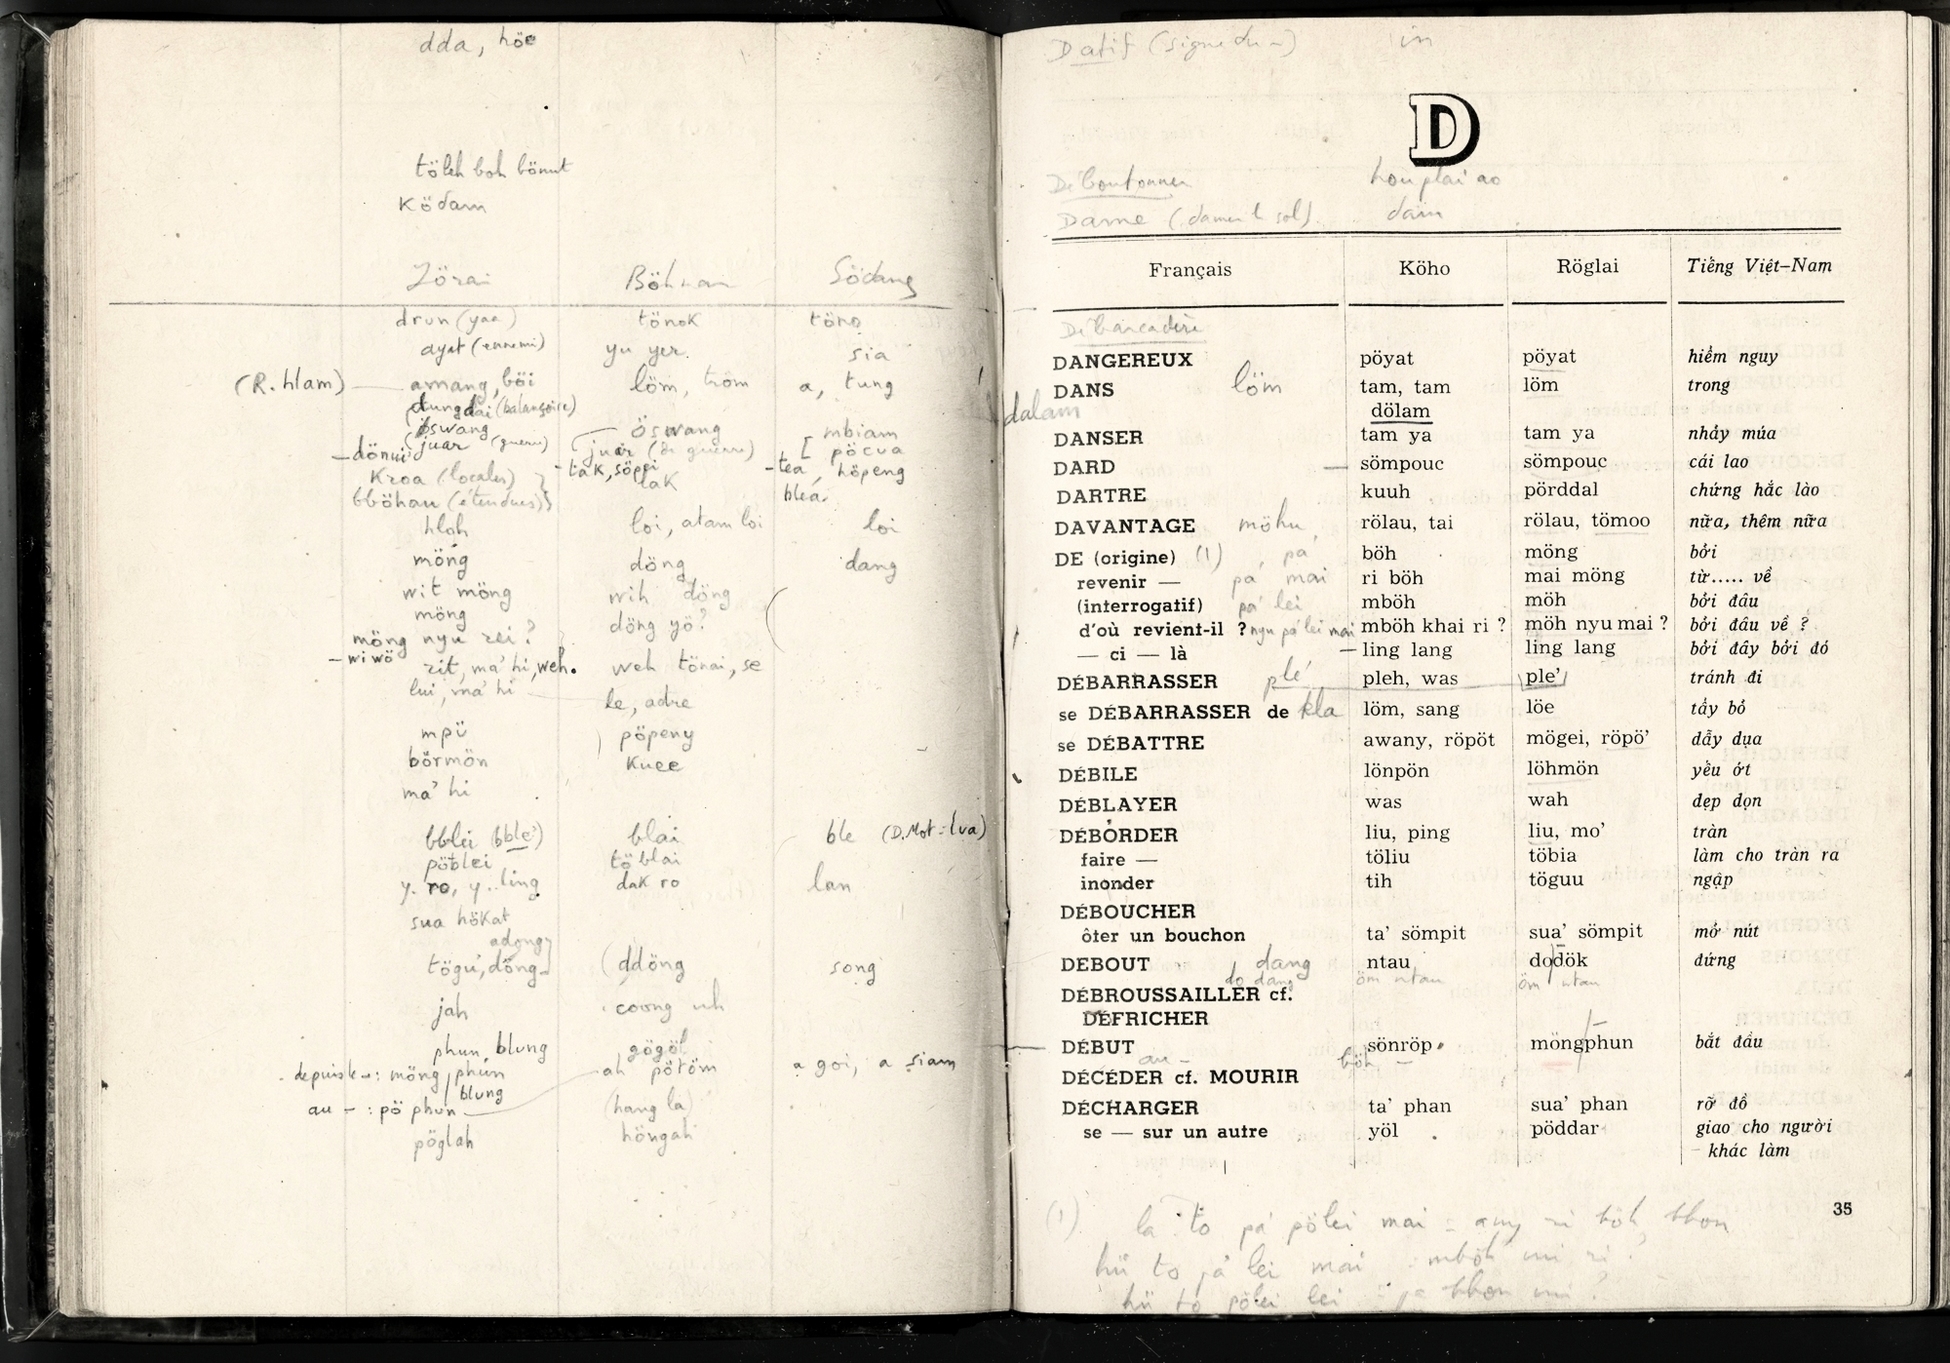 dda, höe
töleh boh bönut
Ködam
Jörai Böhnar Södang
drun (yaa) tönok töno
ayat (ennemi) yu yer. sia
(R. hlam) — amang, böi löm, tröm a, tung
dungdai (balançoire)
öswang öswang mbiam
juar (guerre) juar (de guerre) pöcua
— dönui
Kroa (locales) - tak, söppi lak - tea, höpeng
bböhau (étendues) blea.
hloh loi, atam loi loi
möng döng dang
wit möng wih döng
möng döng yö?
möng nyu rei?
— wi wö rit, ma' hi, weh. weh tönai, se
lui, ma' hi le, adre
mpü pöpeny
börmön Kuee
ma' hi
bblei (bble') blai ble (D.Mot: lva)
pöblei tö blai
y. ro, y.. ling dak ro lan
sua hökat
adong
tögu', döng (ddöng song
jah coong uh
phun, blung gögöl
depuis le -: möng phun ah pötöm a goi, a siam
blung
au - : pö phun (hang la)
pöglah höngah
Datif (signe du -) in
D
Déboutonner hou plai ao
Dame (damer le sol) dam
Français Köho Röglai Tiếng Việt-Nam
Débarcadère
DANGEREUX pöyat pöyat hiểm nguy
DANS löm tam, tam löm trong
dalam dölam
DANSER tam ya tam ya nhảy múa
DARD — sömpouc sömpouc cái lao
DARTRE kuuh pörddal chứng hắc lào
DAVANTAGE möhu, rölau, tai rölau, tömoo nữa, thêm nữa
DE (origine) (1) , pa' böh möng bởi
revenir — pa' mai ri böh mai möng từ..... về
(interrogatif) pa' lei mböh möh bởi đâu
d'où revient-il ? nyu pa' lei mai mböh khai ri ? möh nyu mai ? bởi đâu về ?
— ci — là — ling lang ling lang bởi đây bởi đó
DÉBARRASSER plé' pleh, was ple' tránh đi
se DÉBARRASSER de kla löm, sang löe tẩy bỏ
se DÉBATTRE awany, röpöt mögei, röpö' dẫy dụa
DÉBILE lönpön löhmön yếu ớt
DÉBLAYER was wah dẹp dọn
DÉBORDER liu, ping liu, mo' tràn
faire — töliu töbia làm cho tràn ra
inonder tih töguu ngập
DÉBOUCHER
ôter un bouchon ta' sömpit sua' sömpit mở nút
DEBOUT dang ntau dodök đứng
do dang öm ntau öm ntau
DÉBROUSSAILLER cf.
DÉFRICHER
DÉBUT sönröp möngphun bắt đầu
au - böh —
DÉCÉDER cf. MOURIR
DÉCHARGER ta' phan sua' phan rỡ đồ
se — sur un autre yöl pöddar giao cho người
khác làm
35
(1) la to pa' pölei mai = any ri böh bbon
hü to pa' lei mai : mböh mi ri ?
hü to pölei lei : pa bbon mi ?